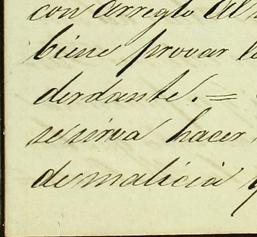 con arreglo al
biene provar l
derdante. =
se sirva hacer
de malicia y